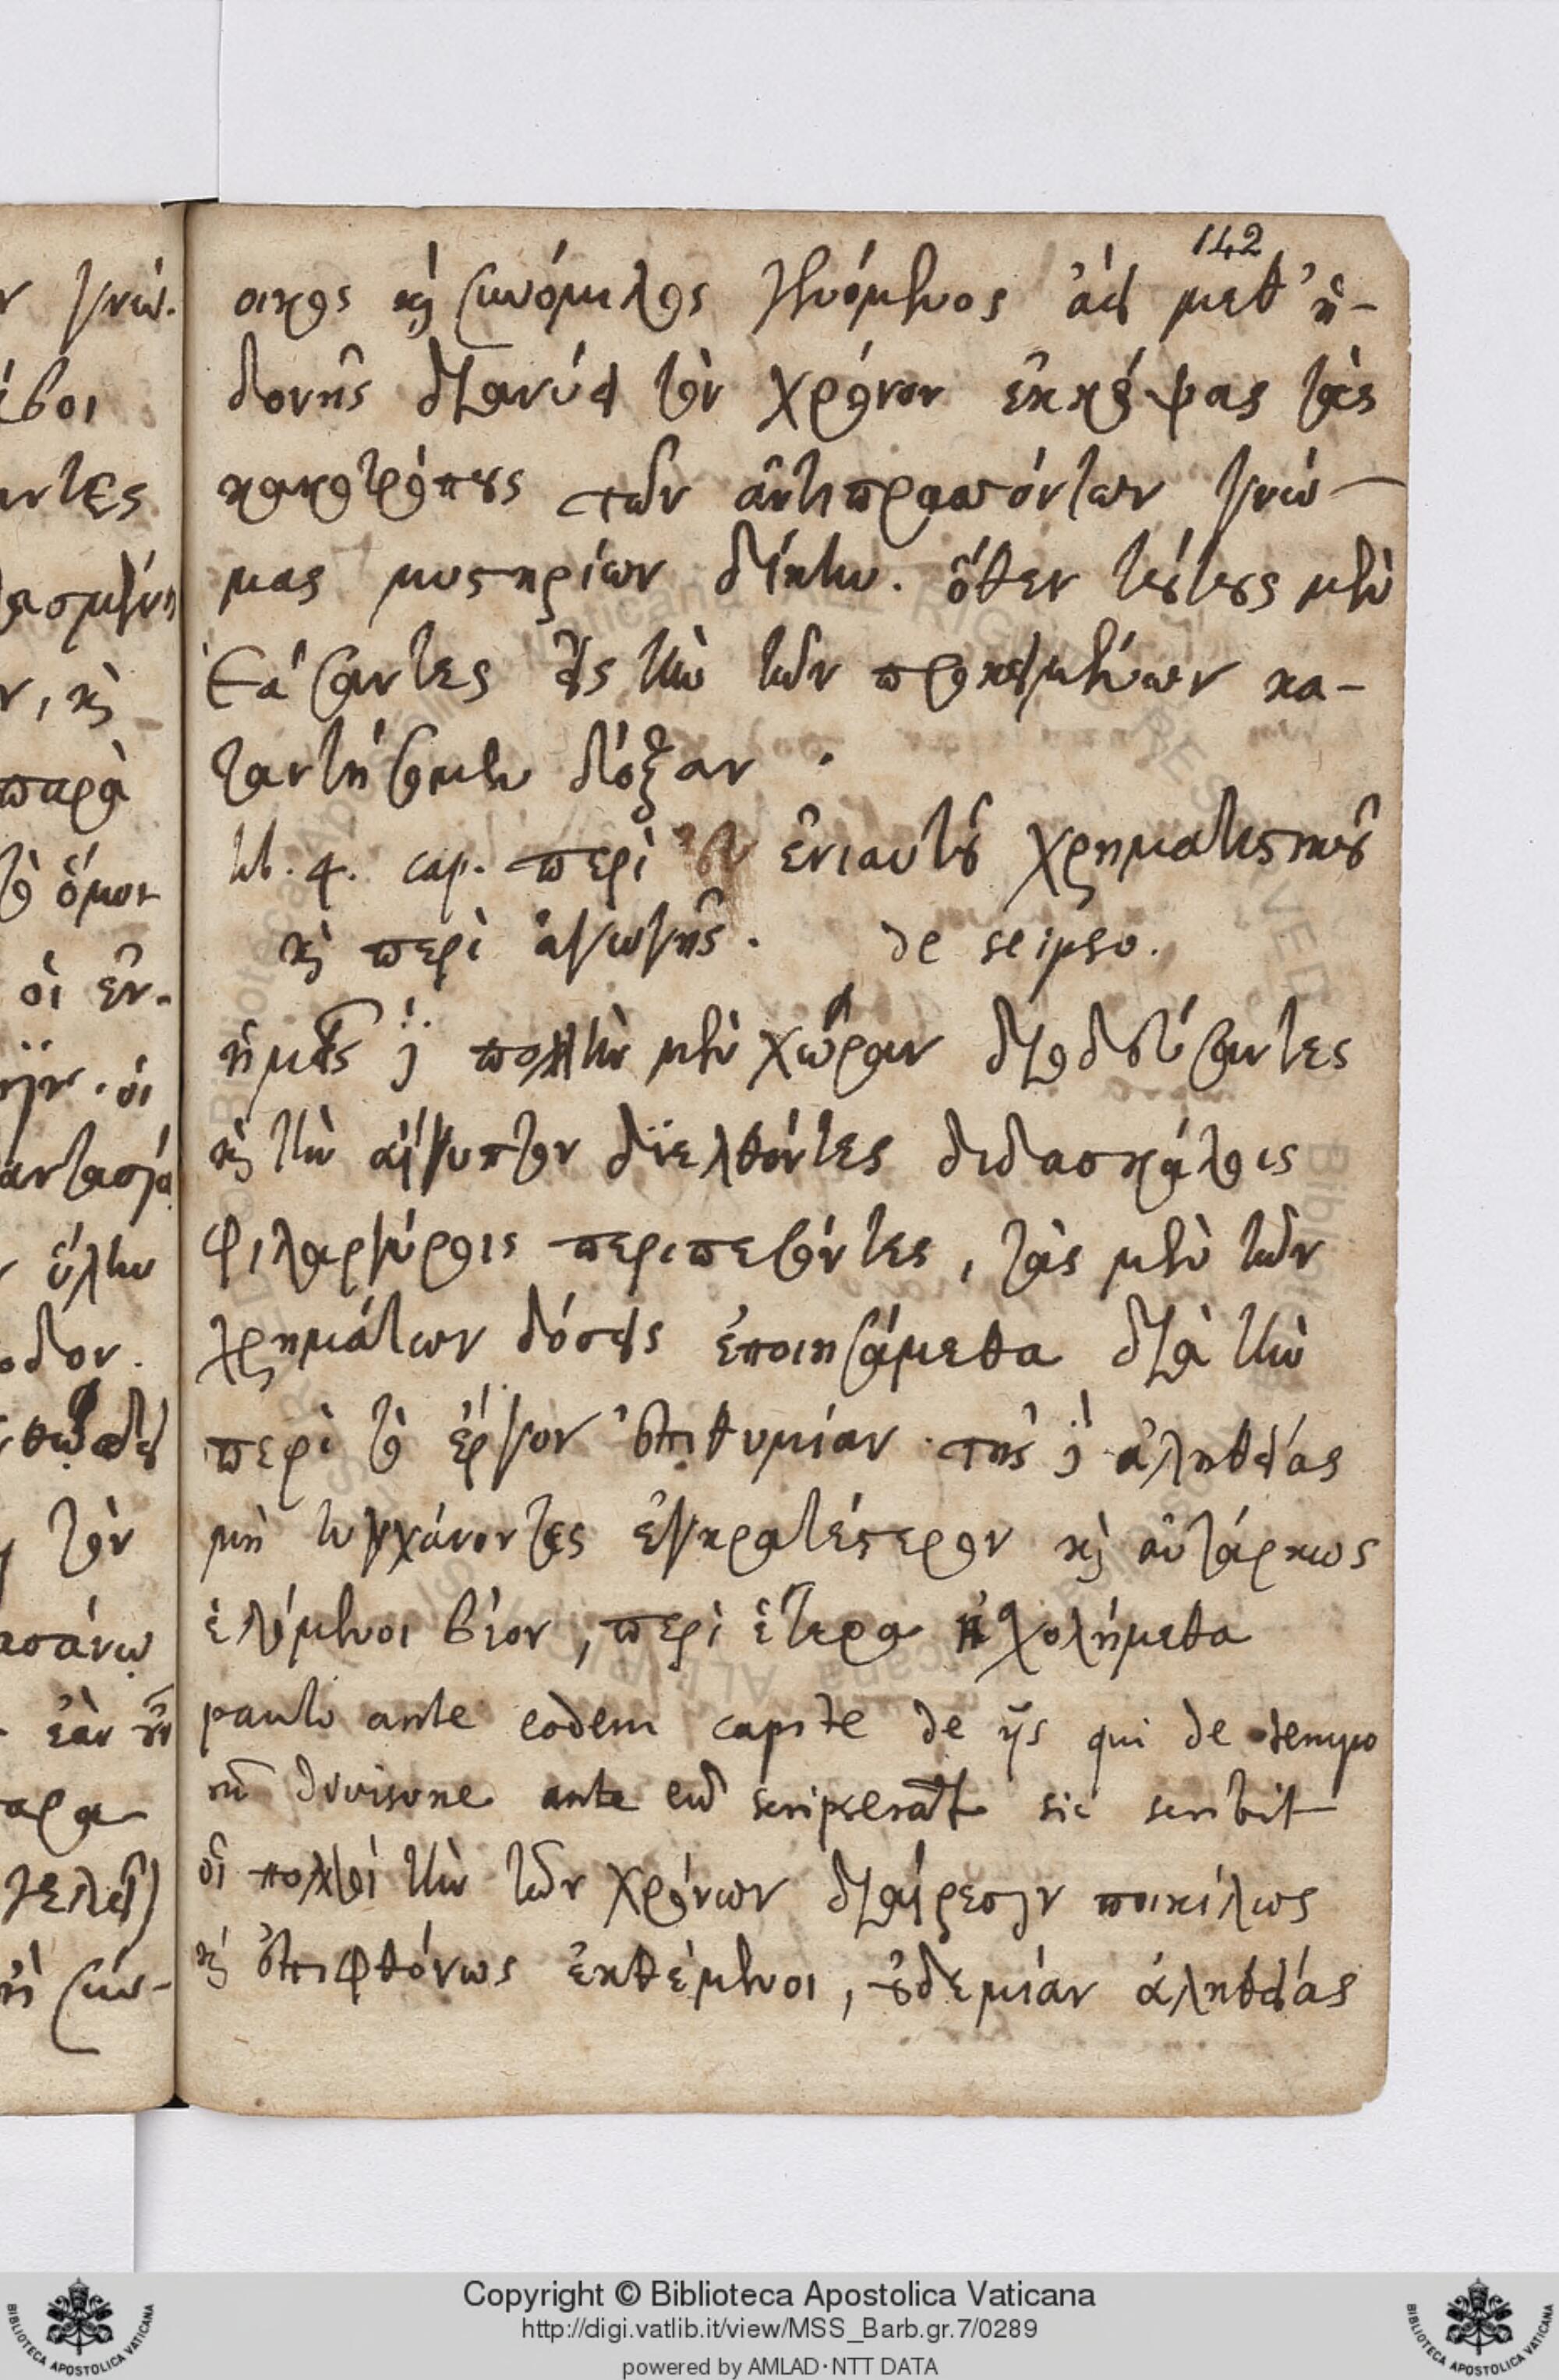 142
οικος καὶ συνόμιλος γενόμενος ἀεὶ μεθ' ἡ-
δονῆς διανύει τὸν χρόνον ἐκκόψας τὰς
κακοτρόπους τῶν ἀντιπρασσόντων γνώ-
μας μυστηρίων δίκην. ὅθεν τούτους μὲν
ἐάσαντες εἰς τὴν τῶν προκειμένων κα-
ταντήσομεν δόξαν.
lib. 4. cap. περὶ ἐνιαυτοῦ χρηματιστικοῦ
καὶ περὶ ἀγωγῆς. de seipso.
ἡμεῖς δὲ πολλὴν μὲν χώραν διοδεύσαντες
καὶ τὴν αἴγυπτον διελθόντες διδασκάλοις
φιλαργύροις περιπεσόντες, τὰς μὲν τῶν
χρημάτων δόσεις ἐποιησάμεθα διὰ τὴν
περὶ τὸ ἔργον ἐπιθυμίαν. τῆς δὲ ἀληθείας
μὴ τυγχάνοντες ἐγκρατέστερον καὶ αὐτάρκως
ἑλόμενοι βίον, περὶ ἕτερα ἠσχολήμεθα
paulo ante eodem capite de ijs qui de tempo
rum divisione ante eum scripserant sic scribit
οἱ πολλοὶ τὴν τῶν χρόνων διαίρεσιν ποικίλως
καὶ ἐπιφθόνως ἐκθέμενοι, οὐδεμίαν ἀληθείας
Copyright © Biblioteca Apostolica Vaticana
http://digi.vatlib.it/view/MSS_Barb.gr.7/0289
powered by AMLAD·NTT DATA